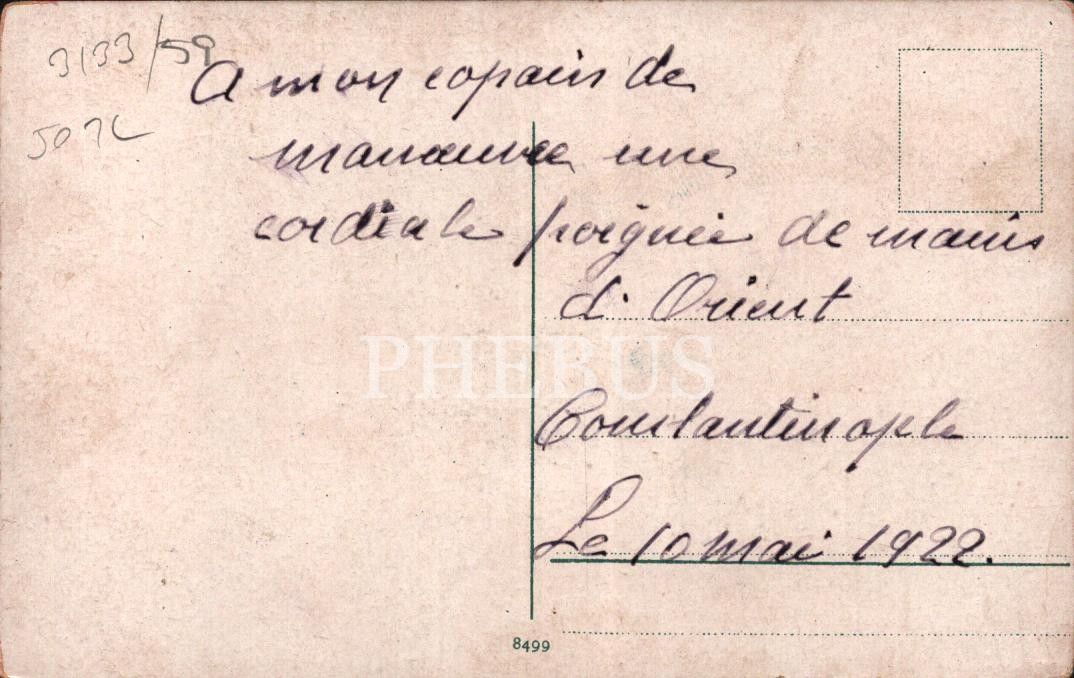 3133/59
507C
A mon copain de
manœuvre une
cordiale poignée de mains
d'Orient
PHEBUS
Constantinople
Le 10 mai 1922.
8499